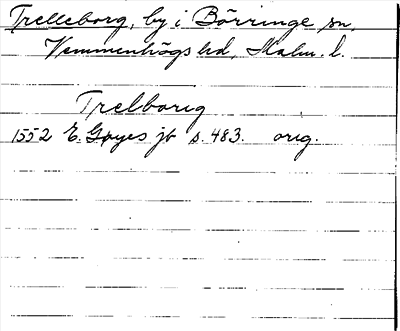 Trelleborg, by i Börringe sn,
Vemmenhögs hd, Malm. l.
Trelborig
1552 E. Gøyes jb s. 483. orig.